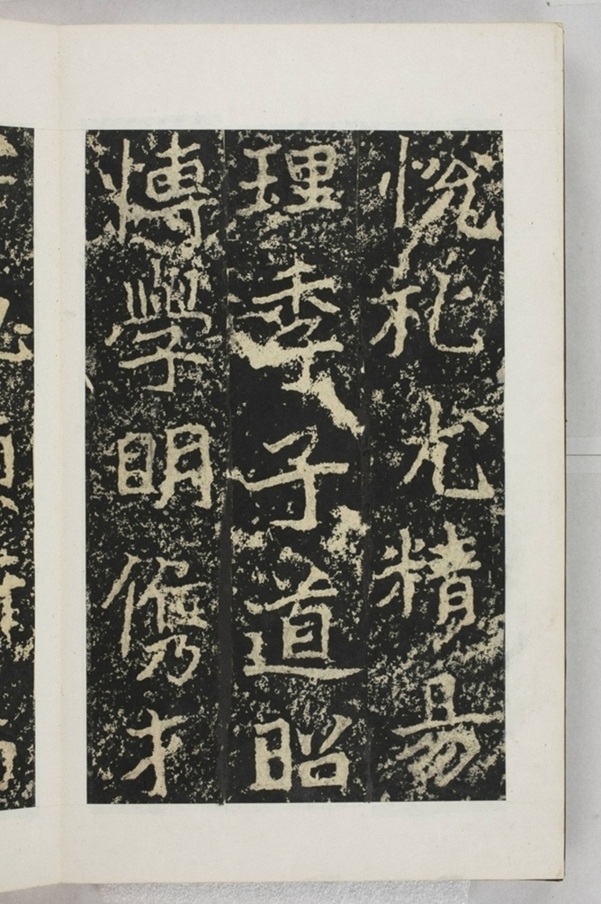 悦礼尤精易
理季子道昭
愽學明儁才